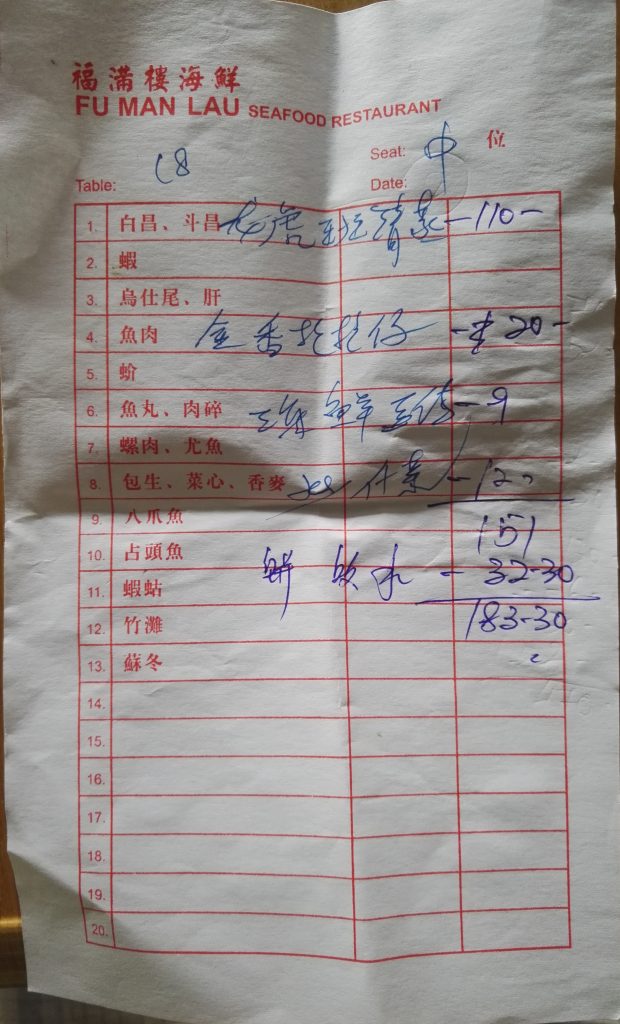 福滿樓海鮮
FU MAN LAU SEAFOOD RESTAURANT
Seat: 中 位
Table: C8
Date:
1. 白昌、斗昌 清蒸 -110-
2. 蝦
3. 烏仕尾、肝
4. 魚肉 金香 仔 - 20-
5. 蚧
6. 魚丸、肉碎 海鮮豆 -9
7. 螺肉、尤魚
8. 包生、菜心、香麥 什菜 -12-
9. 八爪魚 151
10. 占頭魚
11. 蝦蛄 水 - 32-30
12. 竹灘 183-30
13. 蘇冬
14.
15.
16.
17.
18.
19.
20.